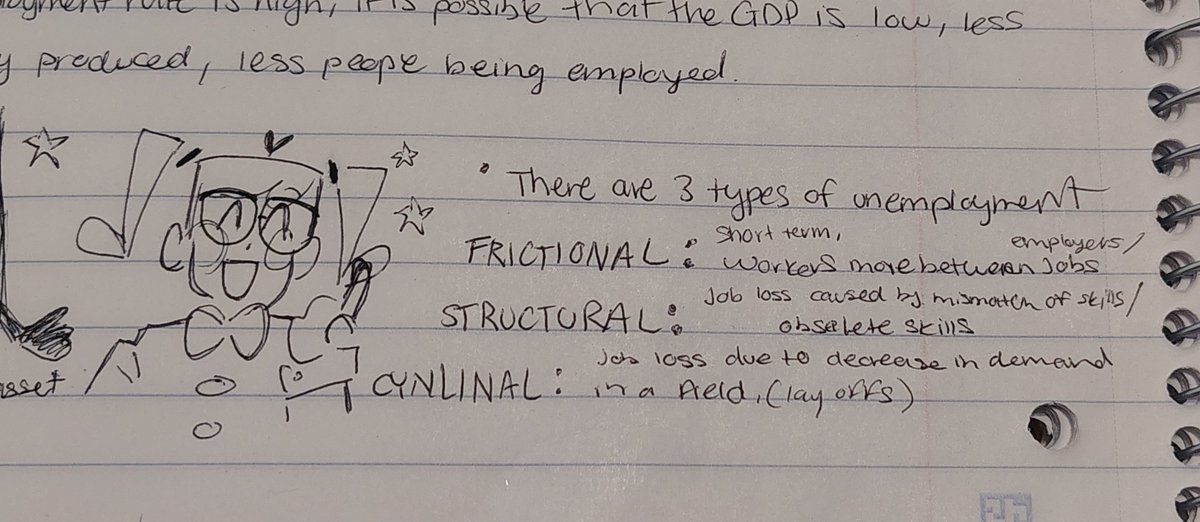 oyment rate is high, it is possible that the GDP is low, less
y produced, less peope being employed.
• There are 3 types of unemployment
FRICTIONAL: short term, employers/
workers move between jobs
STRUCTURAL: Job loss caused by mismatch of skills/
obselete skills
Job loss due to decrease in demand
CYNLINAL: in a field, (lay offs)
asset